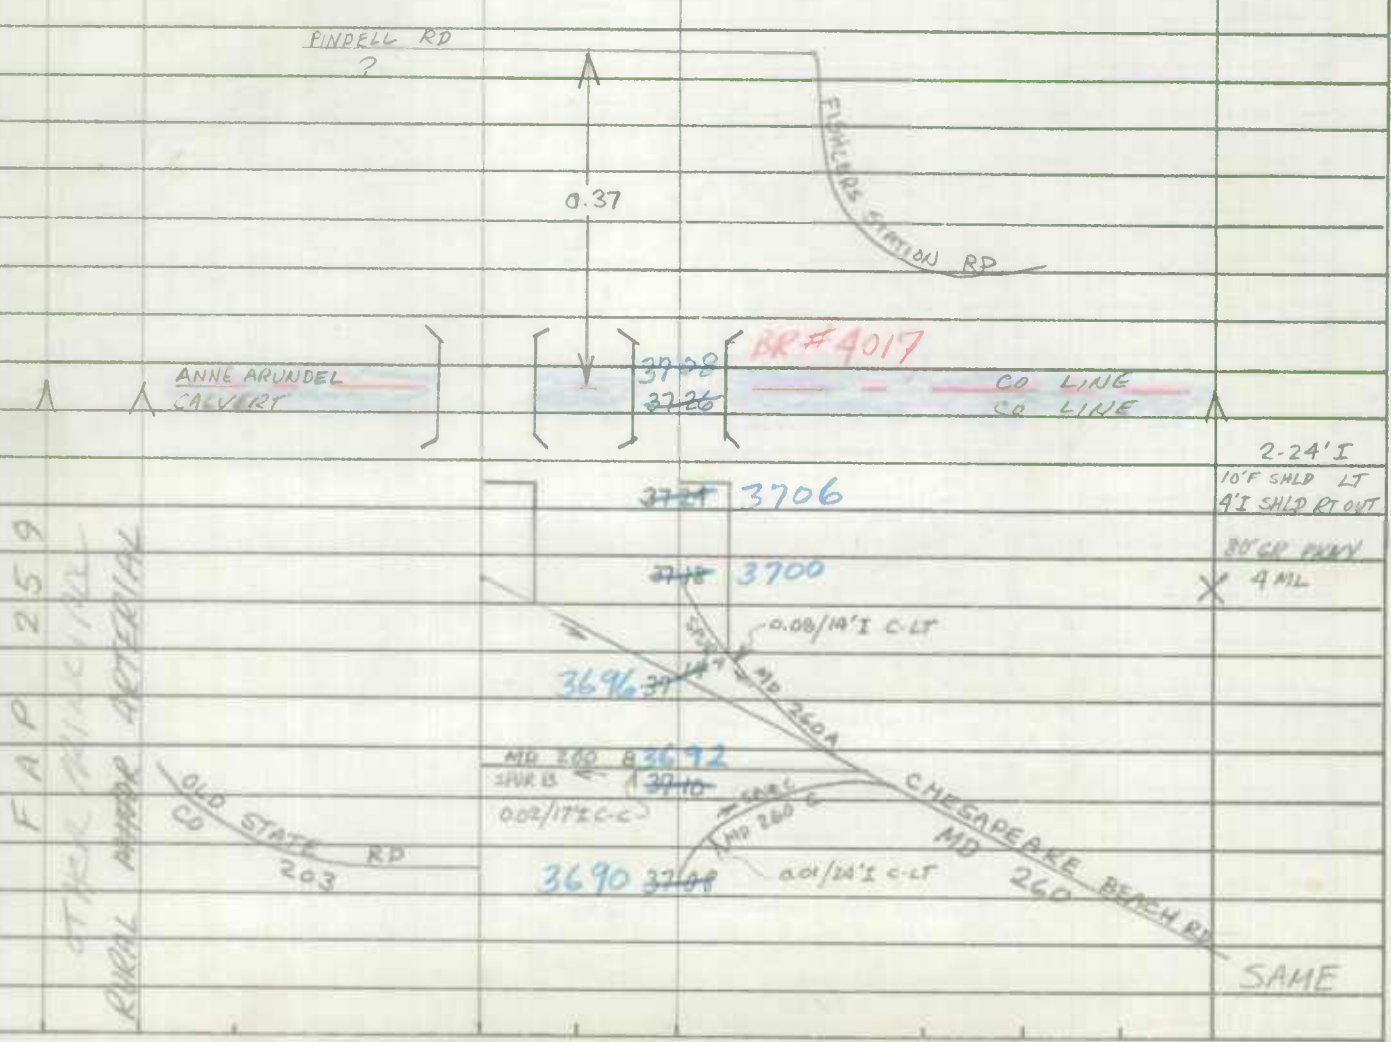 PINDELL RD
?
FISHLERS STATION RD
0.37
BR # 4017
3728
3726
ANNE ARUNDEL
CALVERT
CO LINE
CO LINE
2-24' I
10' F SHLD LT
4' I SHLD RT OUT
80' GR PKWY
4 ML
3724 3706
3718 3700
0.08/14' I C-LT
SPUR A
MD 260A
3696 3714
MD 260 B 3692
SPUR B
3710
0.02/17' I C-C
SPUR C
MD 260 C
0.01/24' I C-LT
3690 3708
CHESAPEAKE BEACH RD
MD 260
OLD STATE RD
CO 203
SAME
FAP 259
OTHER PRINCIPAL
RURAL MINOR ARTERIAL